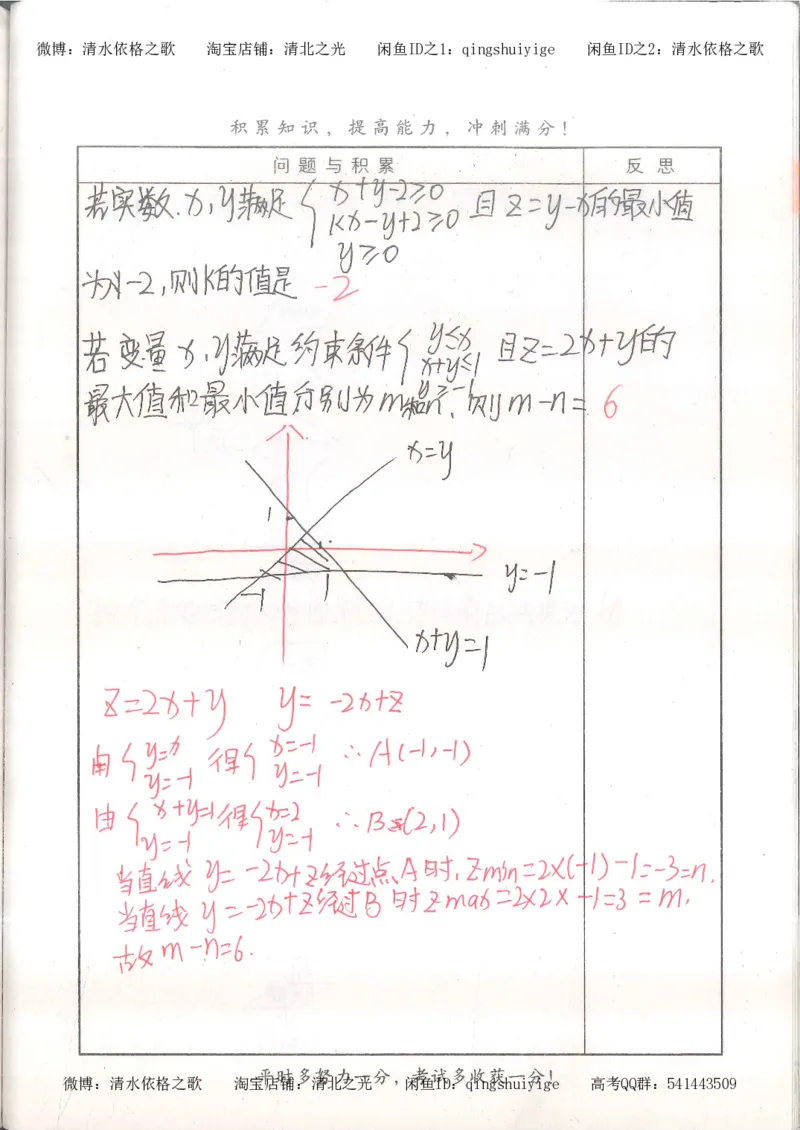 微博：清水依格之歌 淘宝店铺：清北之光 闲鱼ID之1：qingshuiyige 闲鱼ID之2：清水依格之歌
积累知识，提高能力，冲刺满分！
问题与积累 反思
若实数x,y满足{x+y-2≥0
kx-y+2≥0 且z=y-x的最小值
y≥0
为-2,则k的值是 -2
若变量x,y满足约束条件{y≤x
x+y≤1 且z=2x+y的
y≥-1
最大值和最小值分别为m和n,则m-n= 6
x=y
1
y=-1
-1 1
x+y=1
z=2x+y y=-2x+z
由{y=x 得{x=-1 ∴A(-1,-1)
y=-1 y=-1
由{x+y=1得{x=2 ∴B(2,1)
y=-1 y=-1
当直线y=-2x+z经过点A时,zmin=2×(-1)-1=-3=n.
当直线y=-2x+z经过B时zmax=2×2×-1=3=m.
故m-n=6.
平时多努力一分，考试多收获一分！
微博：清水依格之歌 淘宝店铺：清北之光 闲鱼ID：qingshuiyige 高考QQ群：541443509